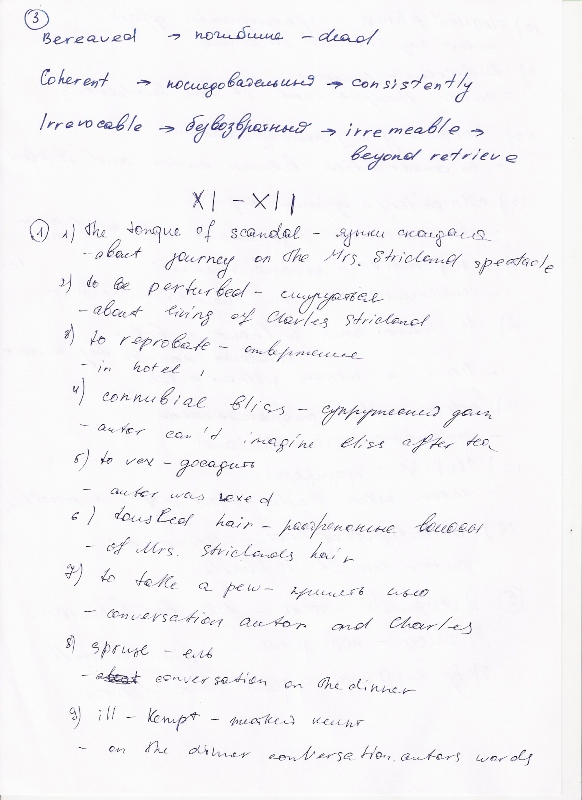 3
Bereaved → погибшие - dead
Coherent → последовательный → consistently
Irrevocable → безвозвратный → irremeable →
beyond retrieve
XI - XII
1 1) the tongue of scandal - языки скандала
- about journey on the Mrs. Stricland spectacle
2) to be perturbed - смущаться
- about living of Charles Stricland
3) to reprobate - отвержение
- in hotel
4) connubial bliss - супружеский долг
- autor can't imagine bliss after tea
5) to vex - досадить
- autor was vexed
6) tousled hair - растрепанные волосы
- of Mrs. Striclands hair
7) to take a pew - принять
- conversation autor and Charles
8) spruse - ель
- conversation on the dinner
9) ill - kempt -
- on the dinner conversation autors words